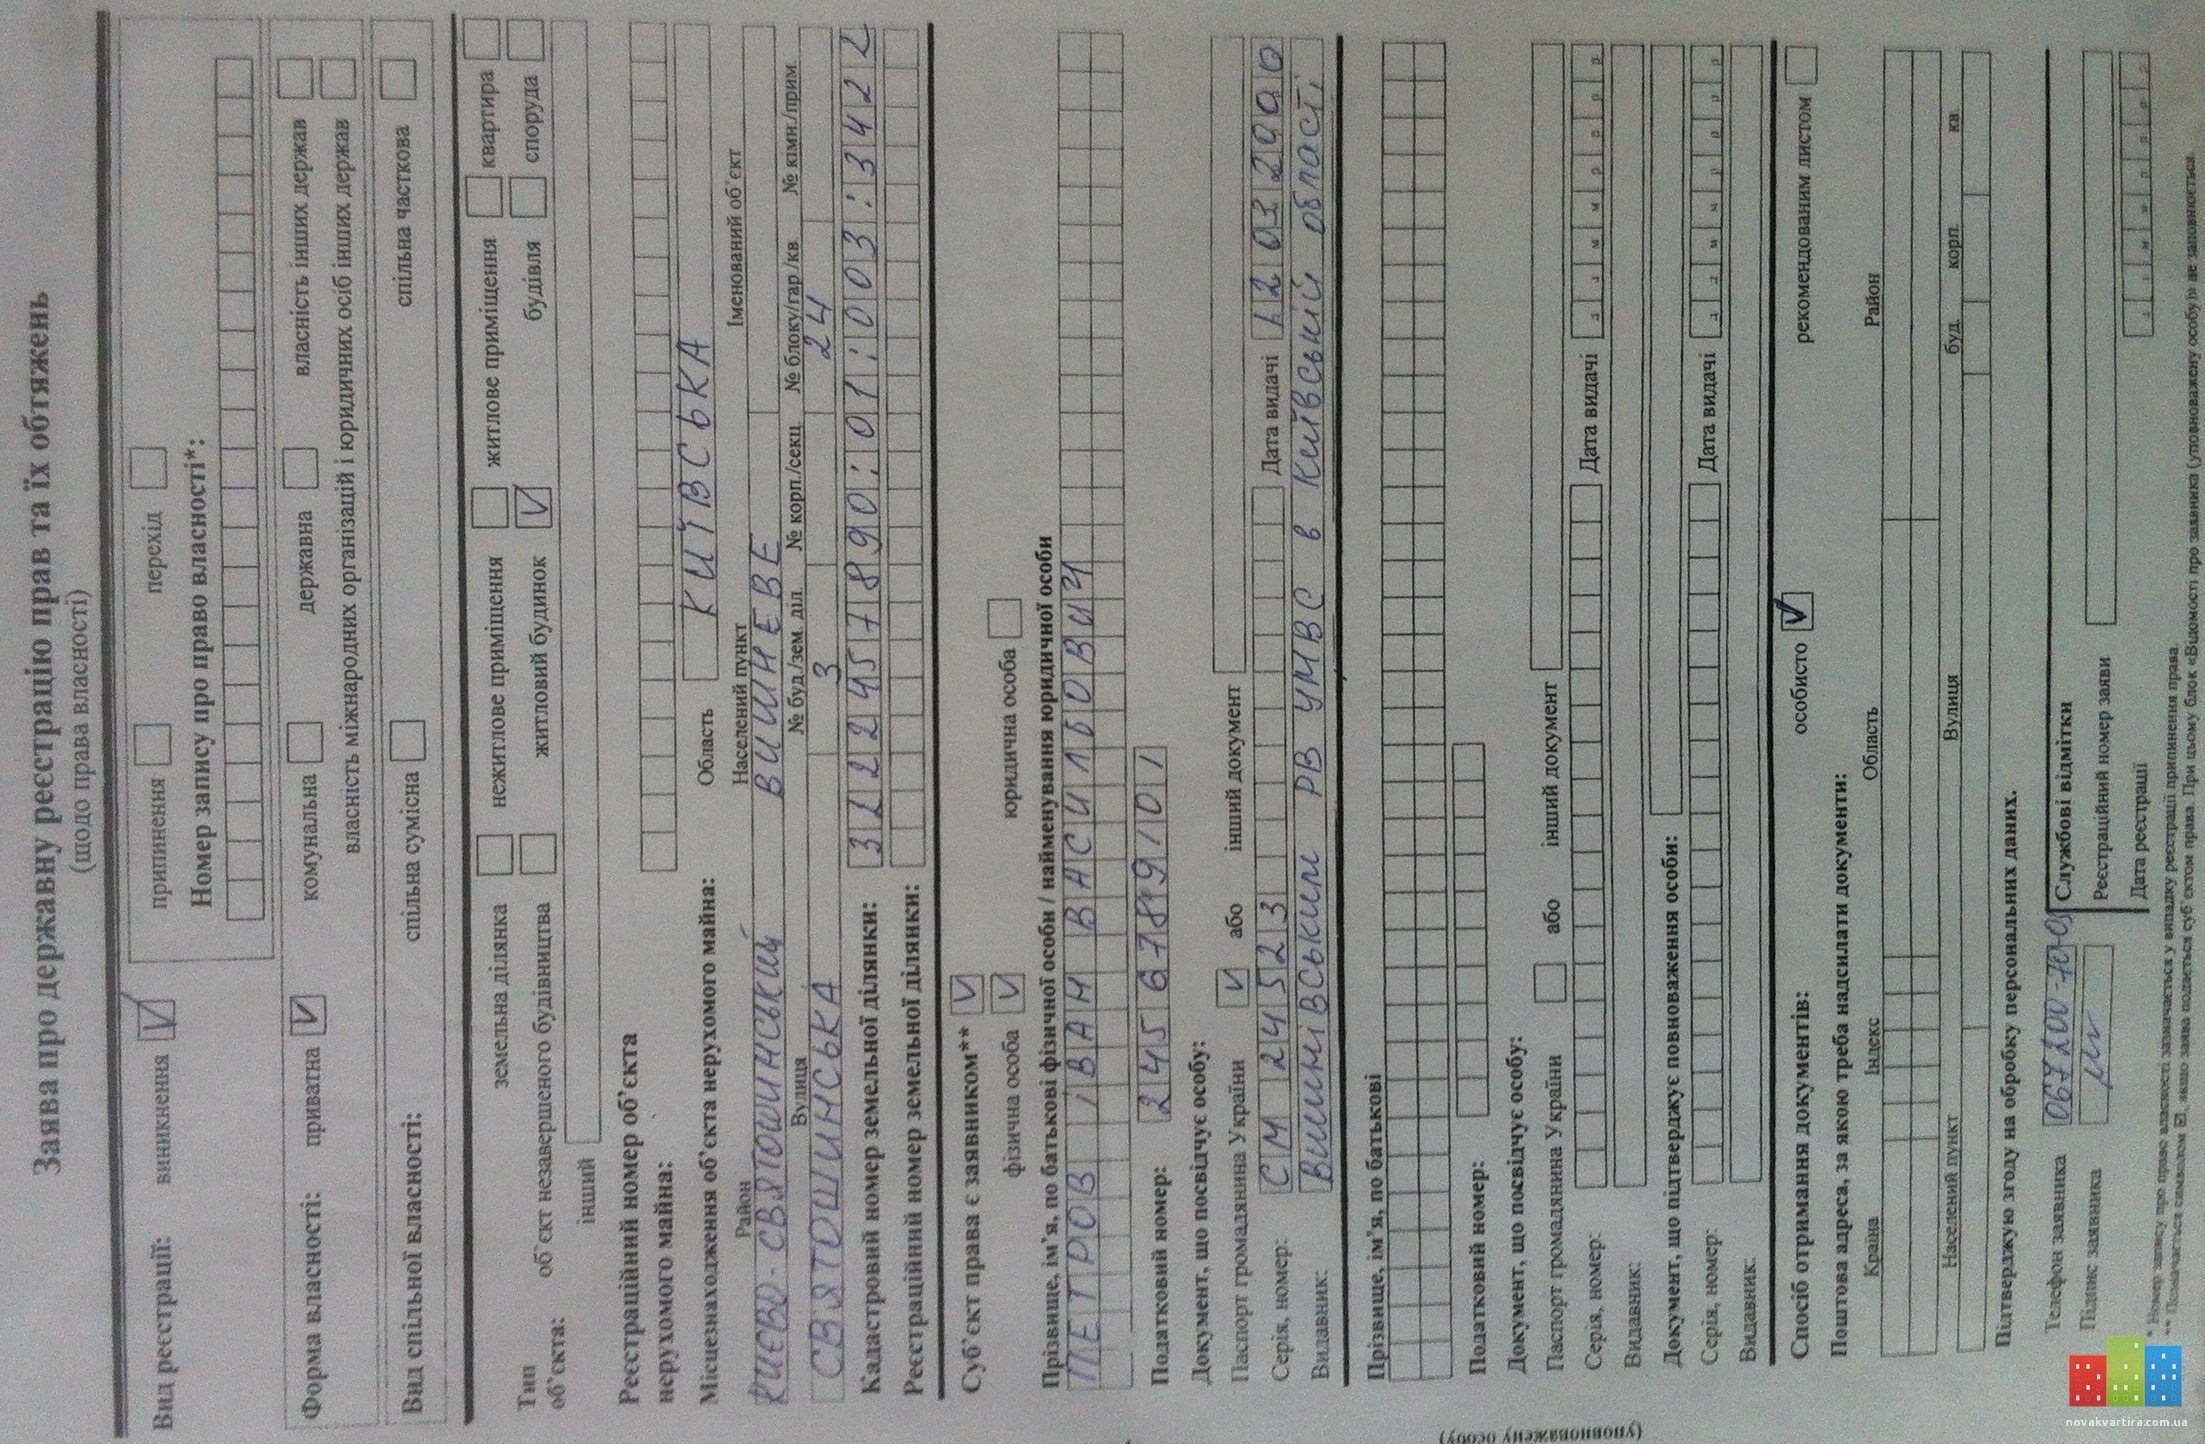 Заява про державну реєстрацію прав та їх обтяжень
(щодо права власності)
Вид реєстрації: виникнення V припинення перехід
Номер запису про право власності*:
Форма власності: приватна V комунальна державна власність інших держав
власність міжнародних організацій і юридичних осіб інших держав
Вид спільної власності: спільна сумісна спільна часткова
Тип об'єкта: земельна ділянка нежитлове приміщення житлове приміщення квартира
об'єкт незавершеного будівництва житловий будинок V будівля споруда
інший
Реєстраційний номер об'єкта
нерухомого майна:
Місцезнаходження об'єкта нерухомого майна: Область КИЇВСЬКА
Район Населений пункт Іменований об'єкт
КИЄВО-СВЯТОШИНСЬКИЙ ВИШНЕВЕ
Вулиця № буд./зем. діл. № корп./секц. № блоку/гар./кв. № кімн./прим.
СВЯТОШИНСЬКА 3 24
Кадастровий номер земельної ділянки: 3222457890:01:003:3422
Реєстраційний номер земельної ділянки:
Суб'єкт права є заявником** V
фізична особа V юридична особа
Прізвище, ім'я, по батькові фізичної особи / найменування юридичної особи
ПЕТРОВ ІВАН ВАСИЛЬОВИЧ
Податковий номер: 2456789101
Документ, що посвідчує особу:
Паспорт громадянина України V або інший документ
Серія, номер: СМ 24523 Дата видачі 12032000
Видавник: Вишнівським РВ УМВС в Київській області
Прізвище, ім'я, по батькові
Податковий номер:
Документ, що посвідчує особу:
Паспорт громадянина України або інший документ
Серія, номер: Дата видачі д д м м р р р р
Видавник:
Документ, що підтверджує повноваження особи:
Серія, номер: Дата видачі д д м м р р р р
Видавник:
(уповноважену особу)
Спосіб отримання документів: особисто V рекомендованим листом
Поштова адреса, за якою треба надсилати документи:
Країна Індекс Область Район
Населений пункт Вулиця буд. корп. кв.
Підтверджую згоду на обробку персональних даних.
Телефон заявника
Підпис заявника
Службові відмітки
Реєстраційний номер заяви
Дата реєстрації д д м м р р р р
* Номер запису про право власності зазначається у випадку реєстрації припинення права.
** Позначається символом ☑, якщо заява подається суб'єктом права. При цьому блок «Відомості про заявника (уповноважену особу)» не заповнюється.
novakvartira.com.ua